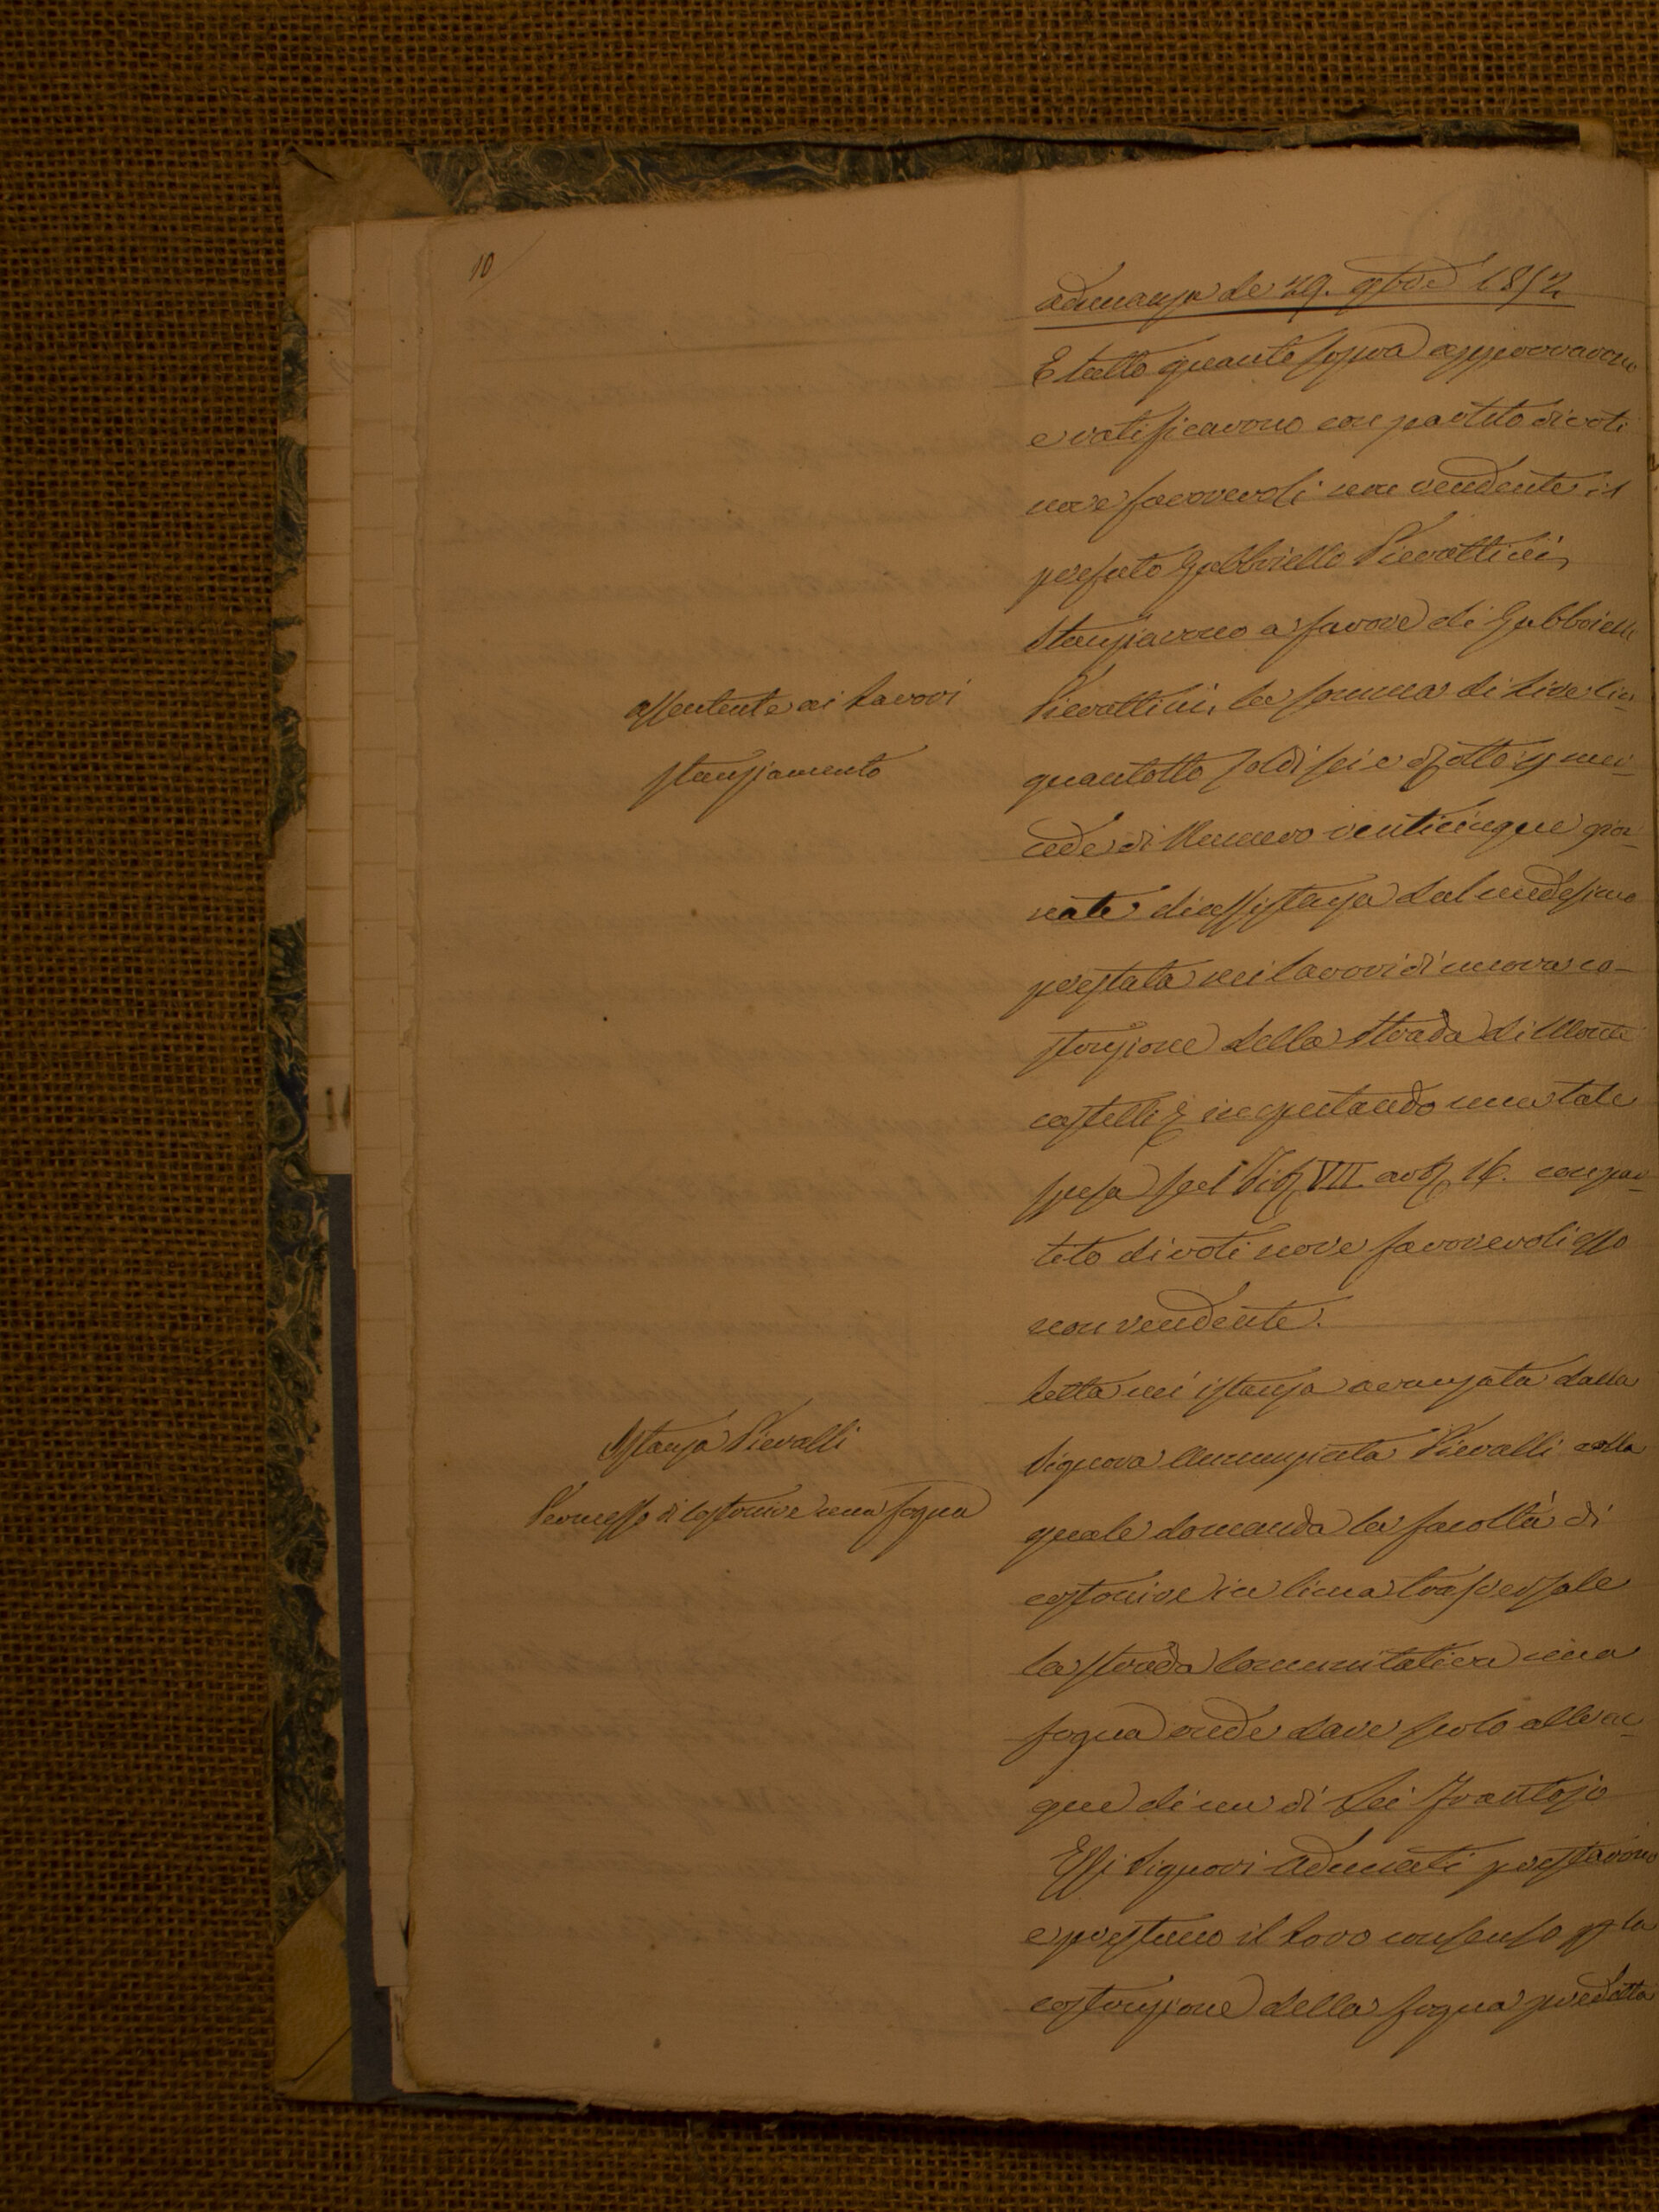 10
Adunanza de 29. 9bre 1852
E tutto quanto sopra approvarono
e ratificarono con partito di voti
nove favorevoli non rendente il
prefato Gabbriello Pierattini,
Stanziarono a favore di Gabbriello
Assentente ai Lavori
Pierattini, la somma di Lire Cin-
Stanziamento
quantotto soldi sei e d otto p mer-
cede di Numero venticinque gior-
nate di assistenza dal medesimo
prestata nei lavori di nuova co-
struzione della Strada di Monte
castelli, imputando una tale
spesa sul Tit VII art 14. con par-
tito di voti nove favorevoli esso
non rendente.
Letta un' istanza avanzata dalla
Istanza Pieralli
Signora Annunziata Pieralli colla
Permesso di costruire una fogna
quale domanda la facoltà di
costruire in linea trasversale
la strada Comunitativa una
fogna onde dare scolo alle ac-
que di un di Lei Frantojo
Essi Signori Adunati prestarono
e prestano il Loro consenso p la
costruzione della fogna predetta